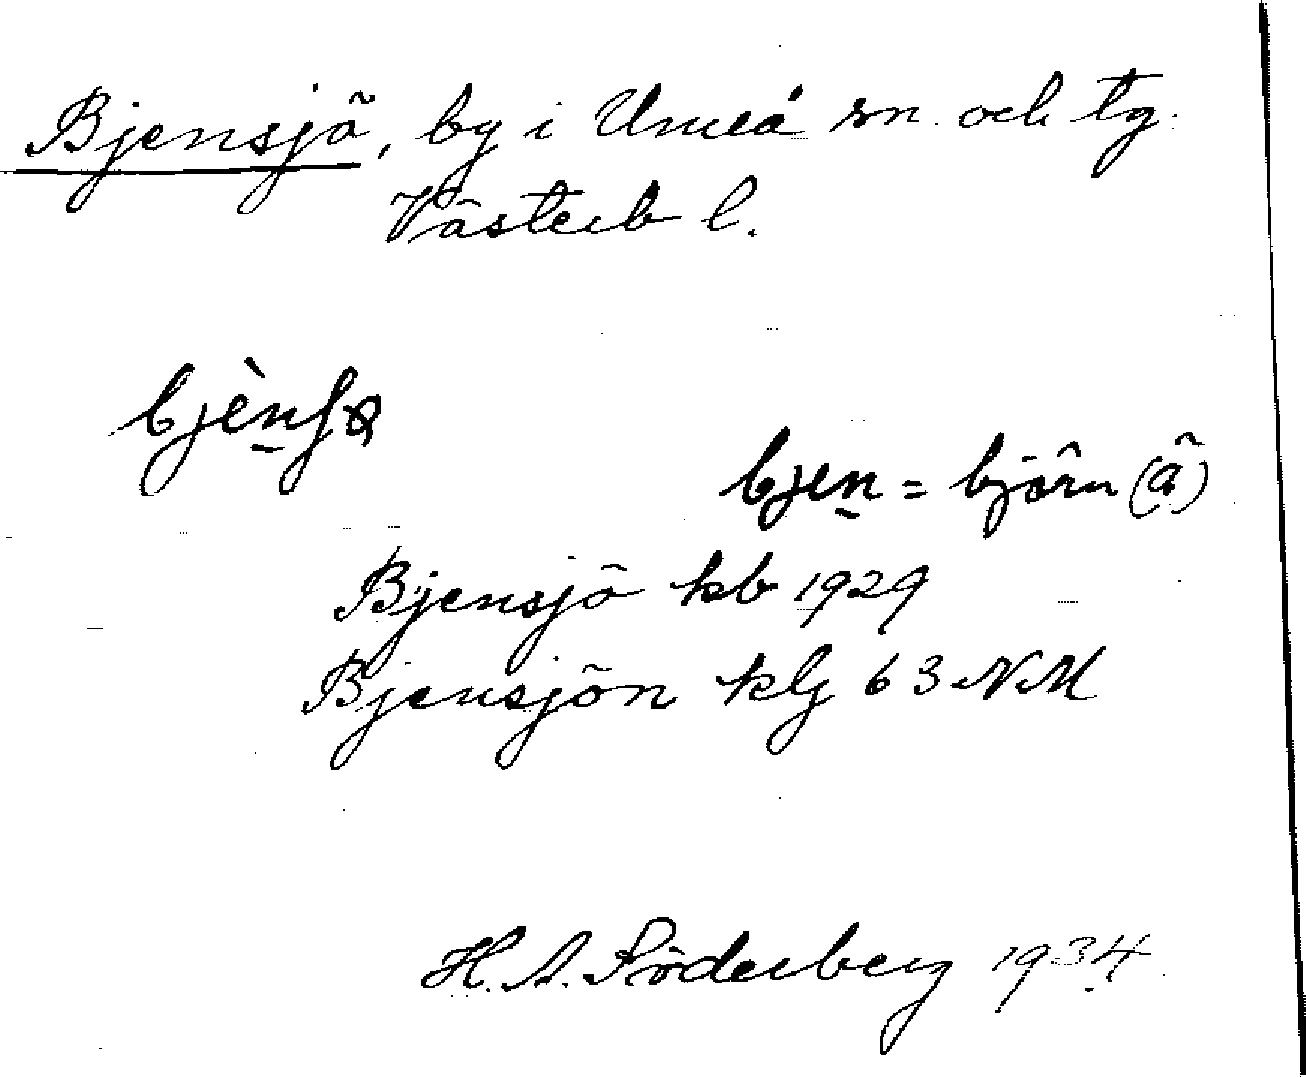 Bjensjö, by i Umeå sn. och tg.
Västerb l.
bjen = björn (ä)
Bjensjö kb 1929
Bjensjön klg 63 NM
H. A. Söderberg 1934